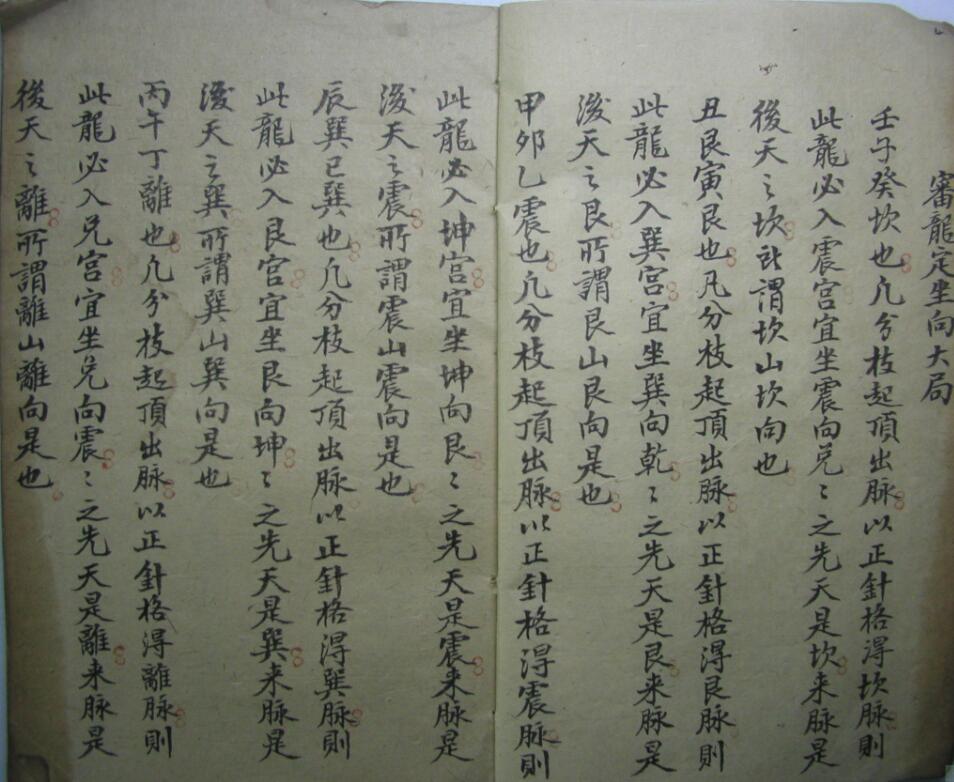 審龍定坐向大局
壬子癸坎也凡分枝起頂出脉以正針格得坎脉則
此龍必入震宮宜坐震向兑〻之先天是坎来脉是
後天之坎所謂坎山坎向也
丑艮寅艮也凡分枝起頂出脉以正針格得艮脉則
此龍必入巽宮宜坐巽向乾〻之先天是艮来脉是
後天之艮所謂艮山艮向是也
甲夘乙震也凡分枝起頂出脉以正針格得震脉則
此龍必入坤宮宜坐坤向艮〻之先天是震来脉是
後天之震所謂震山震向是也
辰巽巳巽也凡分枝起頂出脉以正針格得巽脉則
此龍必入艮宮宜坐艮向坤〻之先天是巽来脉是
後天之巽所謂巽山巽向是也
丙午丁離也凡分枝起頂出脉以正針格得離脉則
此龍必入兑宮宜坐兑向震〻之先天是離来脉是
後天之離所謂離山離向是也